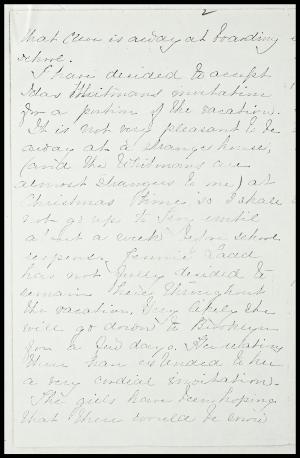 2
that one is away at boarding
school.
I have decided to accept
Idas Whitmans invitation
for a portion of the vacation.
It is not very pleasant to be
away at a strange house,
(and the Whitmans are
almost strangers to me) at
Christmas time so I shall
not go up to Troy until
about a week before school
reopens. Fannie Ladd
has not fully decided to
remain here throughout
the vacation. Very likely she
will go down to Brooklyn
for a few days. Her relatives
there have extended to her
a very cordial invitation.
The girls have been hoping
that there would be snow